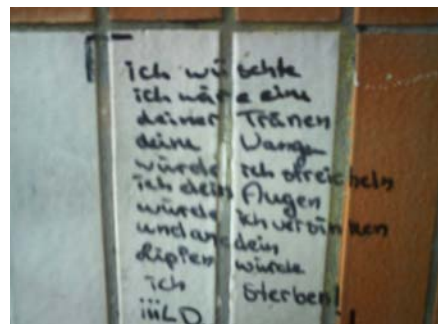 ich wünschte
ich wäre eine
deiner Tränen
deine Wangen
würde ich streicheln
in dein Augen
würde ich versinken
und an dein
Lippen würde
ich sterben!
iiiLD